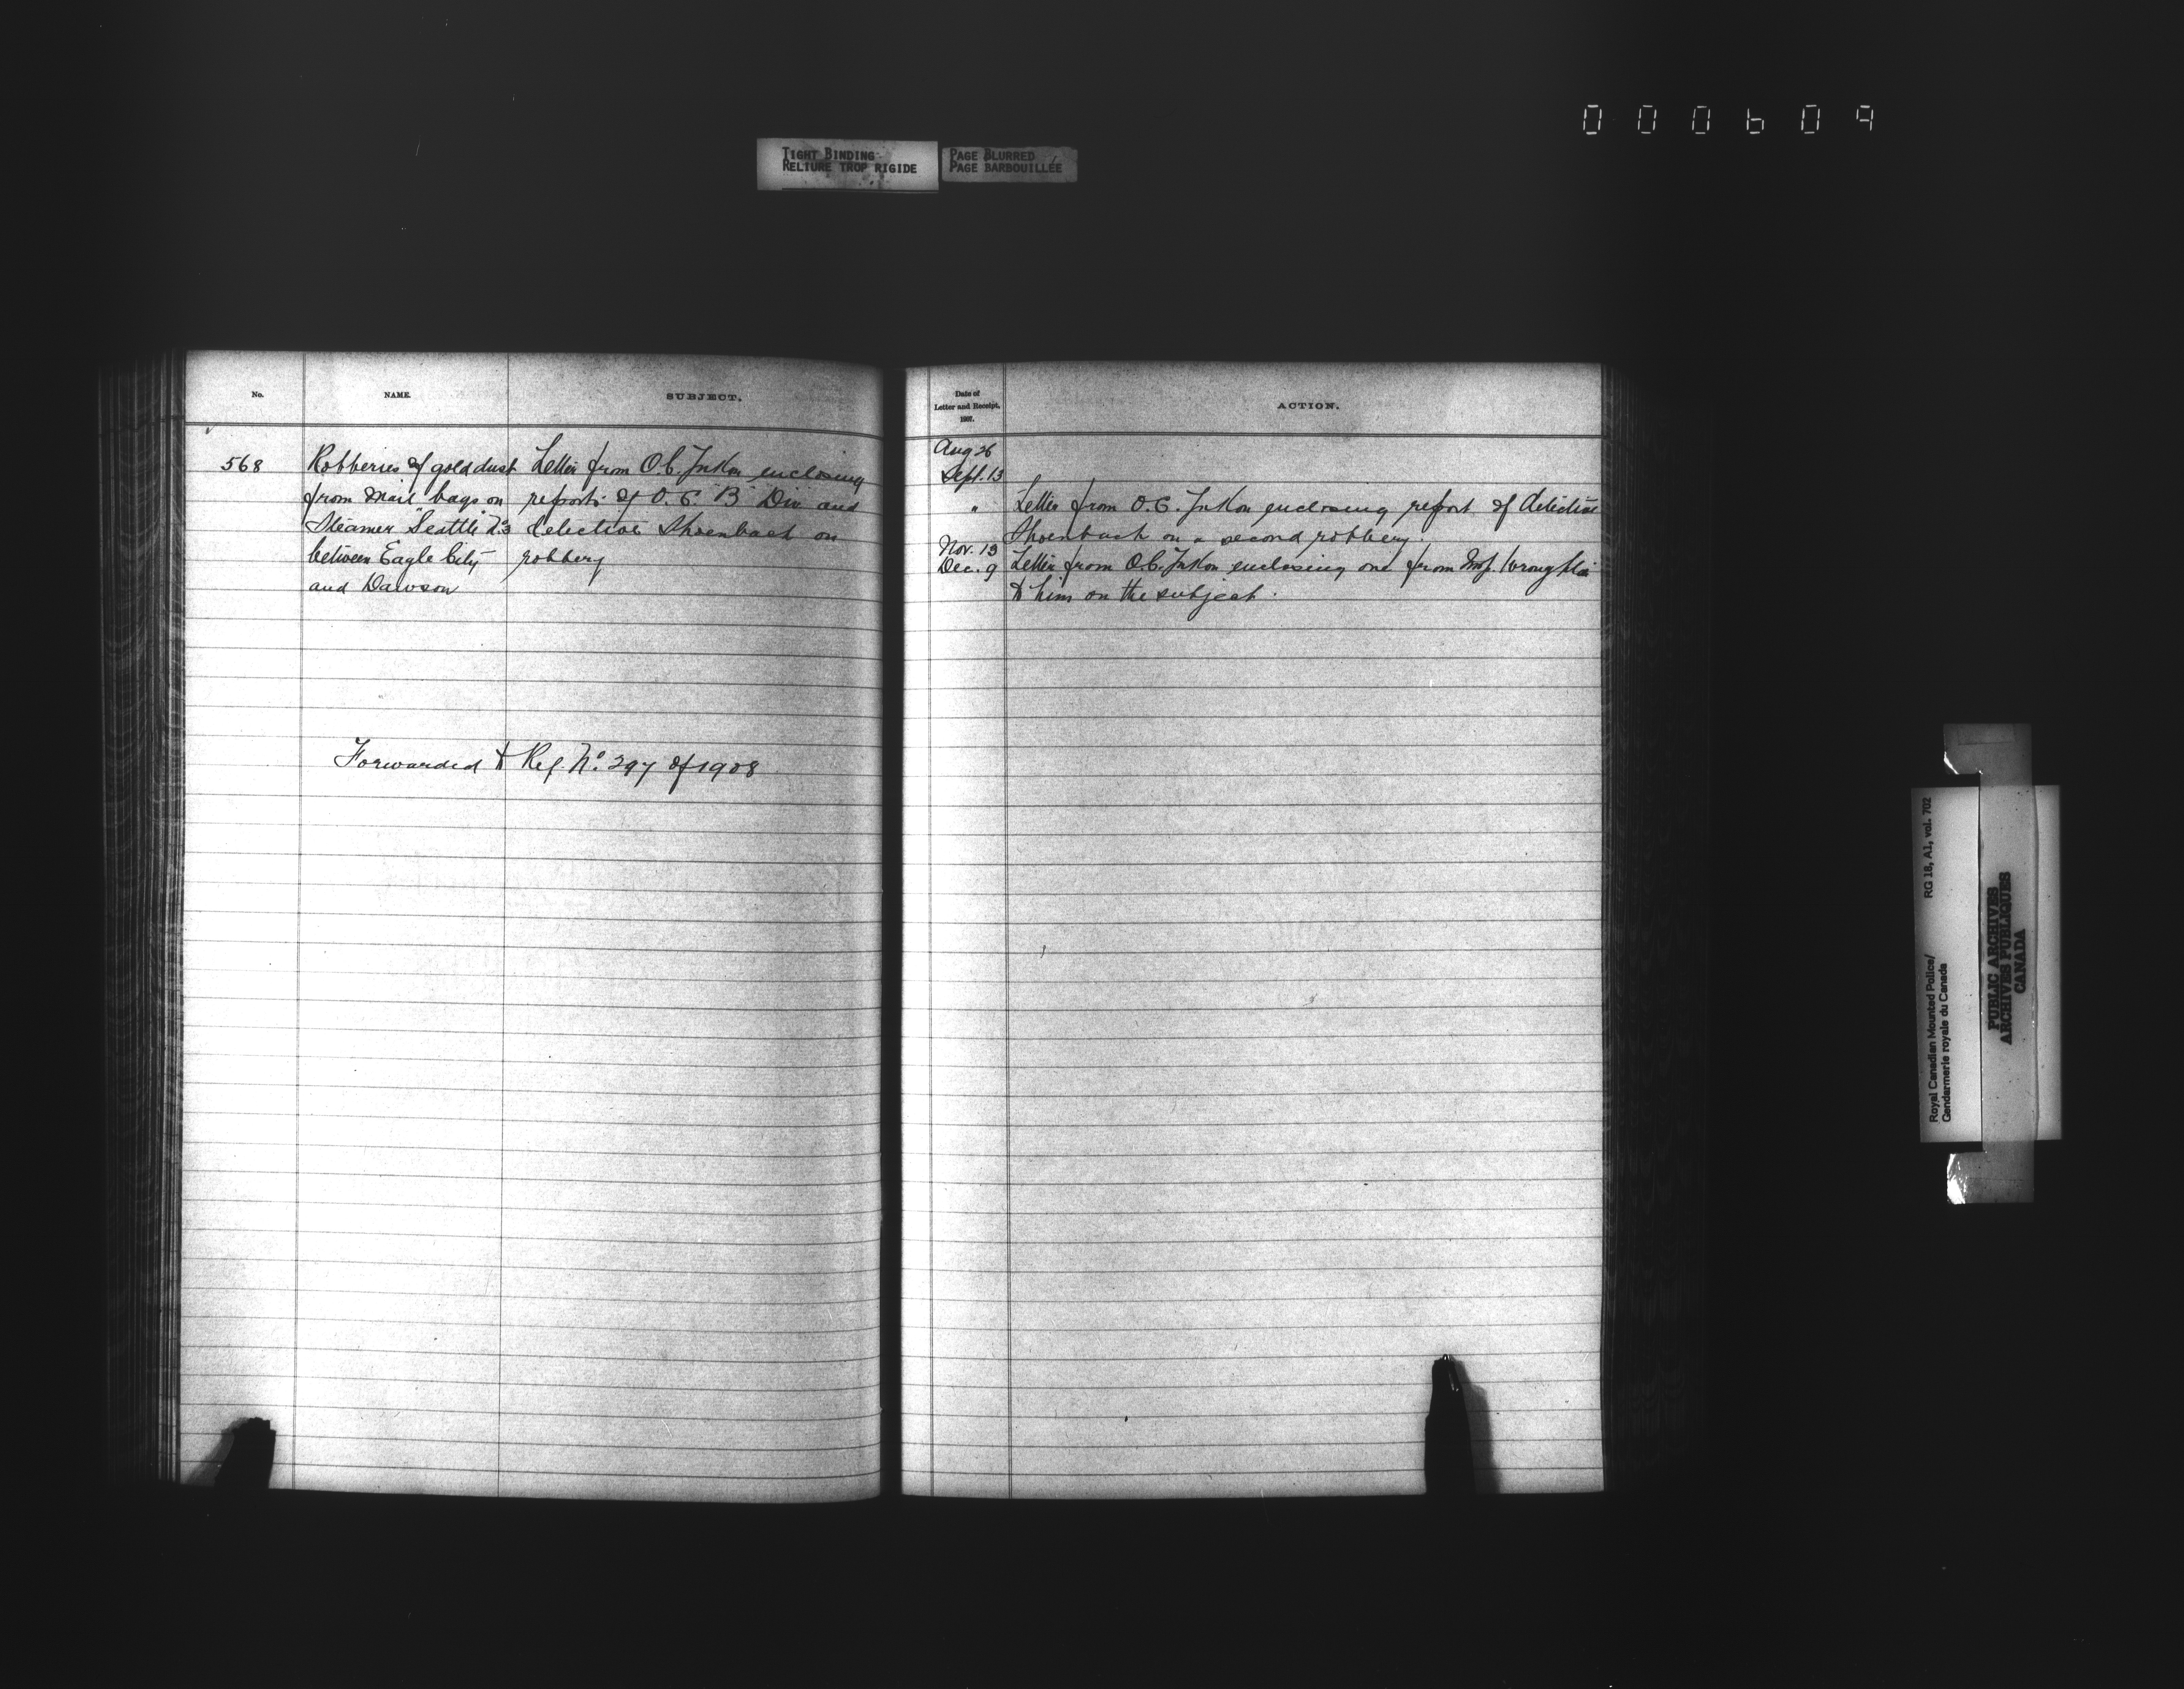 000609
TIGHT BINDING
RELIURE TROP RIGIDE
PAGE BLURRED
PAGE BARBOUILLÉE
No.
NAME.
SUBJECT.
568
Robberies of gold dust
from Mail bags on
Steamer "Seattle No 3
between Eagle City
and Dawson
Letter from O.C. Yukon enclosing
reports of O.C. "B" Div. and
detective Shoenback on
robbery
Forwarded to Ref. No. 297 of 1908
Date of
Letter and Receipt,
1907.
ACTION.
Aug 26
Sept. 13
" Letter from O.C. Yukon enclosing report of detective
Shoenback on a second robbery.
Nov. 13
Dec. 9 Letter from O.C. Yukon enclosing one from
to him on the subject.
Royal Canadian Mounted Police/
Gendarmerie royale du Canada
RG 18, A1, vol. 702
PUBLIC ARCHIVES
ARCHIVES PUBLIQUES
CANADA